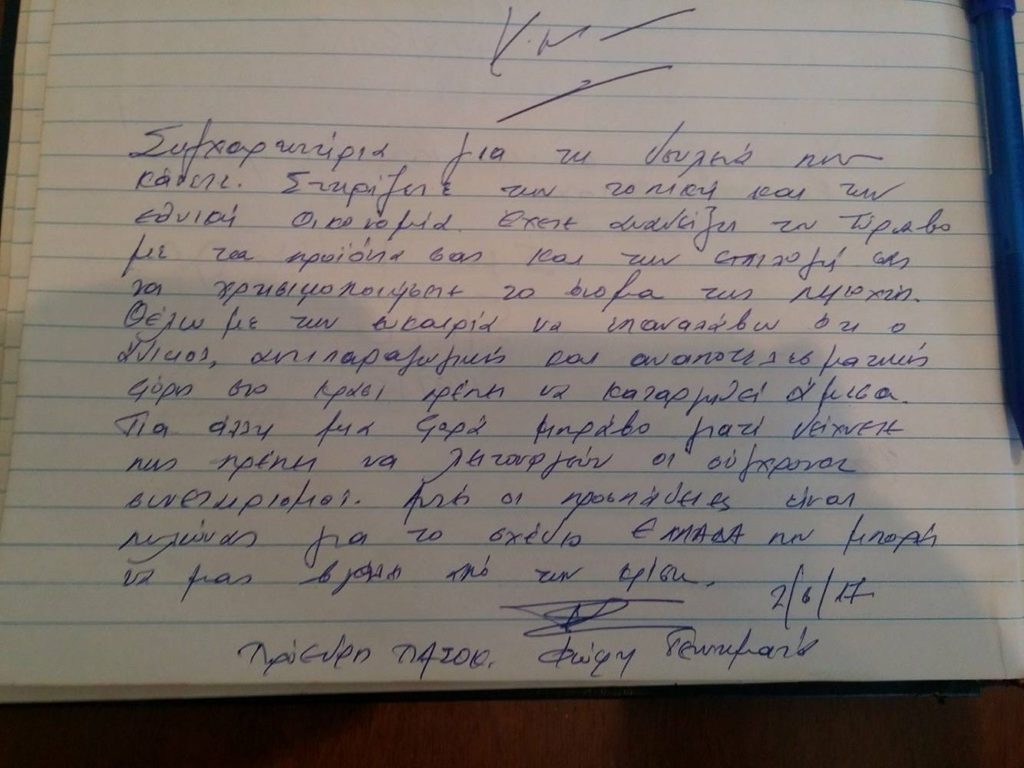 Συγχαρητήρια για τη δουλειά που
κάνετε. Στηρίζετε την τοπική και την
εθνική οικονομία. Έχετε αναδείξει τον Τύρναβο
με τα προϊόντα σας και την επιλογή σας
να χρησιμοποιήσετε το όνομα της περιοχής.
Θέλω με την ευκαιρία να επαναλάβω ότι ο
άδικος, αντιπαραγωγικός και αναποτελεσματικός
φόρος στο κρασί πρέπει να καταργηθεί άμεσα.
Για άλλη μια φορά μπράβο γιατί δείχνετε
πως πρέπει να λειτουργούν οι σύγχρονοι
συνεταιρισμοί. Αυτές οι προσπάθειες είναι
πυλώνας για το σχέδιο ΕΛΛΑΔΑ που μπορεί
να μας βγάλει από την κρίση.
2/6/17
Πρόεδρη ΠΑΣΟΚ. Φώφη Γεννηματά